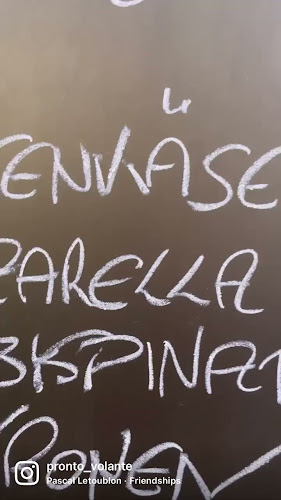 ENKÄSE
ZARELLA
SPINAT
RONEN
pronto_volante
Pascal Letoublon · Friendships